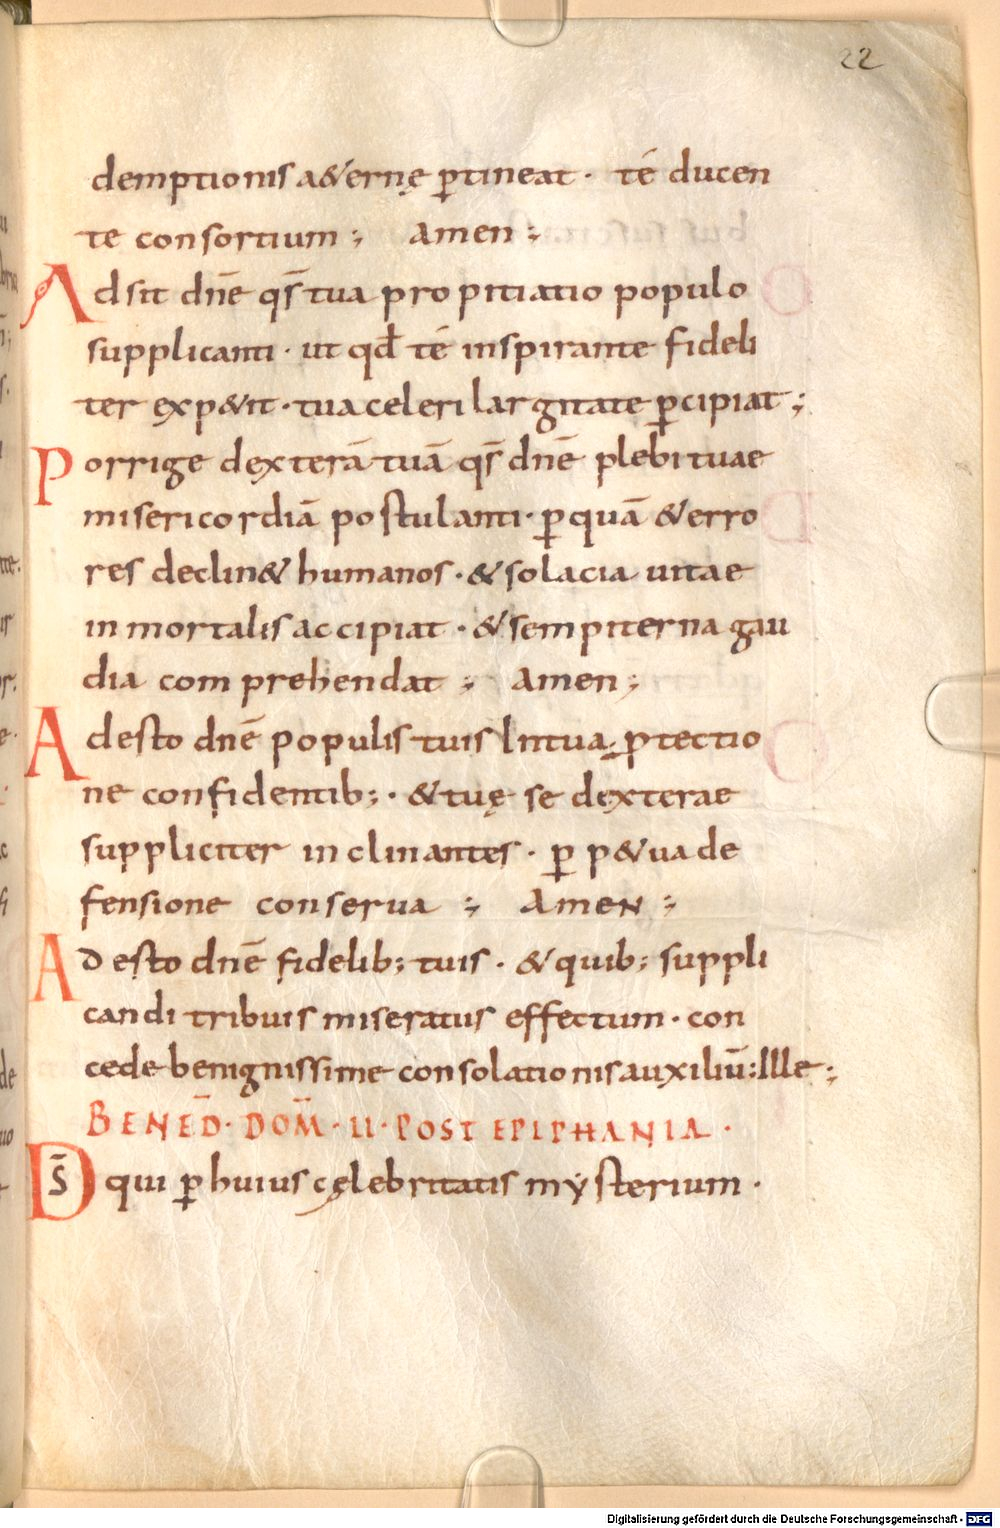 22
demptionis a&ernę p̱tineat · té ducen
te consortium ; amen ;
Adsit dn̄e qs̄ tua propitiatio populo
supplicanti · ut qđ té inspirante fideli
ter exp&it · tua celeri largitate p̱cipiat ;
Porrige dexterā tuā qs̄ dn̄e plebi tuae
misericordiā postulanti · p̱ quā & erro
res declin& humanos · & solacia uitae
in mortalis accipiat · & sempiterna gau
dia comprehendat ; amen ;
Adesto dn̄e populis tuis in tua p̱tectio
ne confidentib; · & tuę se dexterae
suppliciter inclinantes · p̱ p&ua de
fensione conserua ; Amen ;
Adesto dn̄e fidelib; tuis · & quib; suppli
candi tribuis miseratus effectum · con
cede benignissime consolationis auxiliū : Ille ;
BENED̄ · DOM̄ · II · POST EPIPHANIA ·
DS̄ qui p̱ huius cęlebritatis mẏsterium ·
Digitalisierung gefördert durch die Deutsche Forschungsgemeinschaft - DFG